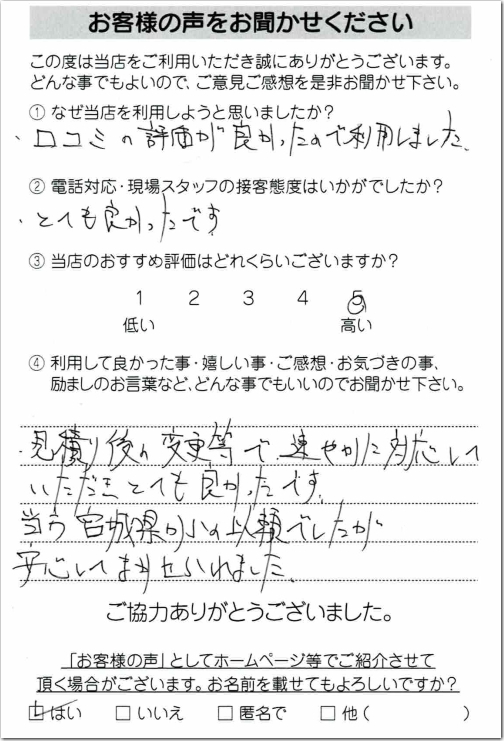 お客様の声をお聞かせください
この度は当店をご利用いただき誠にありがとうございます。
どんな事でもよいので、ご意見ご感想を是非お聞かせ下さい。
① なぜ当店を利用しようと思いましたか?
・口コミの評価が良かったので利用しました。
② 電話対応・現場スタッフの接客態度はいかがでしたか?
・とても良かったです
③ 当店のおすすめ評価はどれくらいございますか?
1 2 3 4 5
低い 高い
④ 利用して良かった事・嬉しい事・ご感想・お気づきの事、
励ましのお言葉など、どんな事でもいいのでお聞かせ下さい。
・見積り後の変更等で速やかに対応して
いただきとても良かったです。
宮城県からの依頼でしたが
安心してまかせられました。
ご協力ありがとうございました。
「お客様の声」としてホームページ等でご紹介させて
頂く場合がございます。お名前を載せてもよろしいですか?
☑ はい □ いいえ □ 匿名で □ 他( )